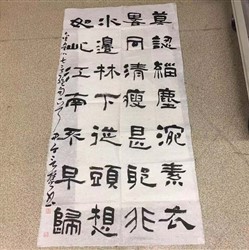 莫認緇塵涴素衣
畧同清瘦是耶非
水邊林下從頭想
如此江南不早歸